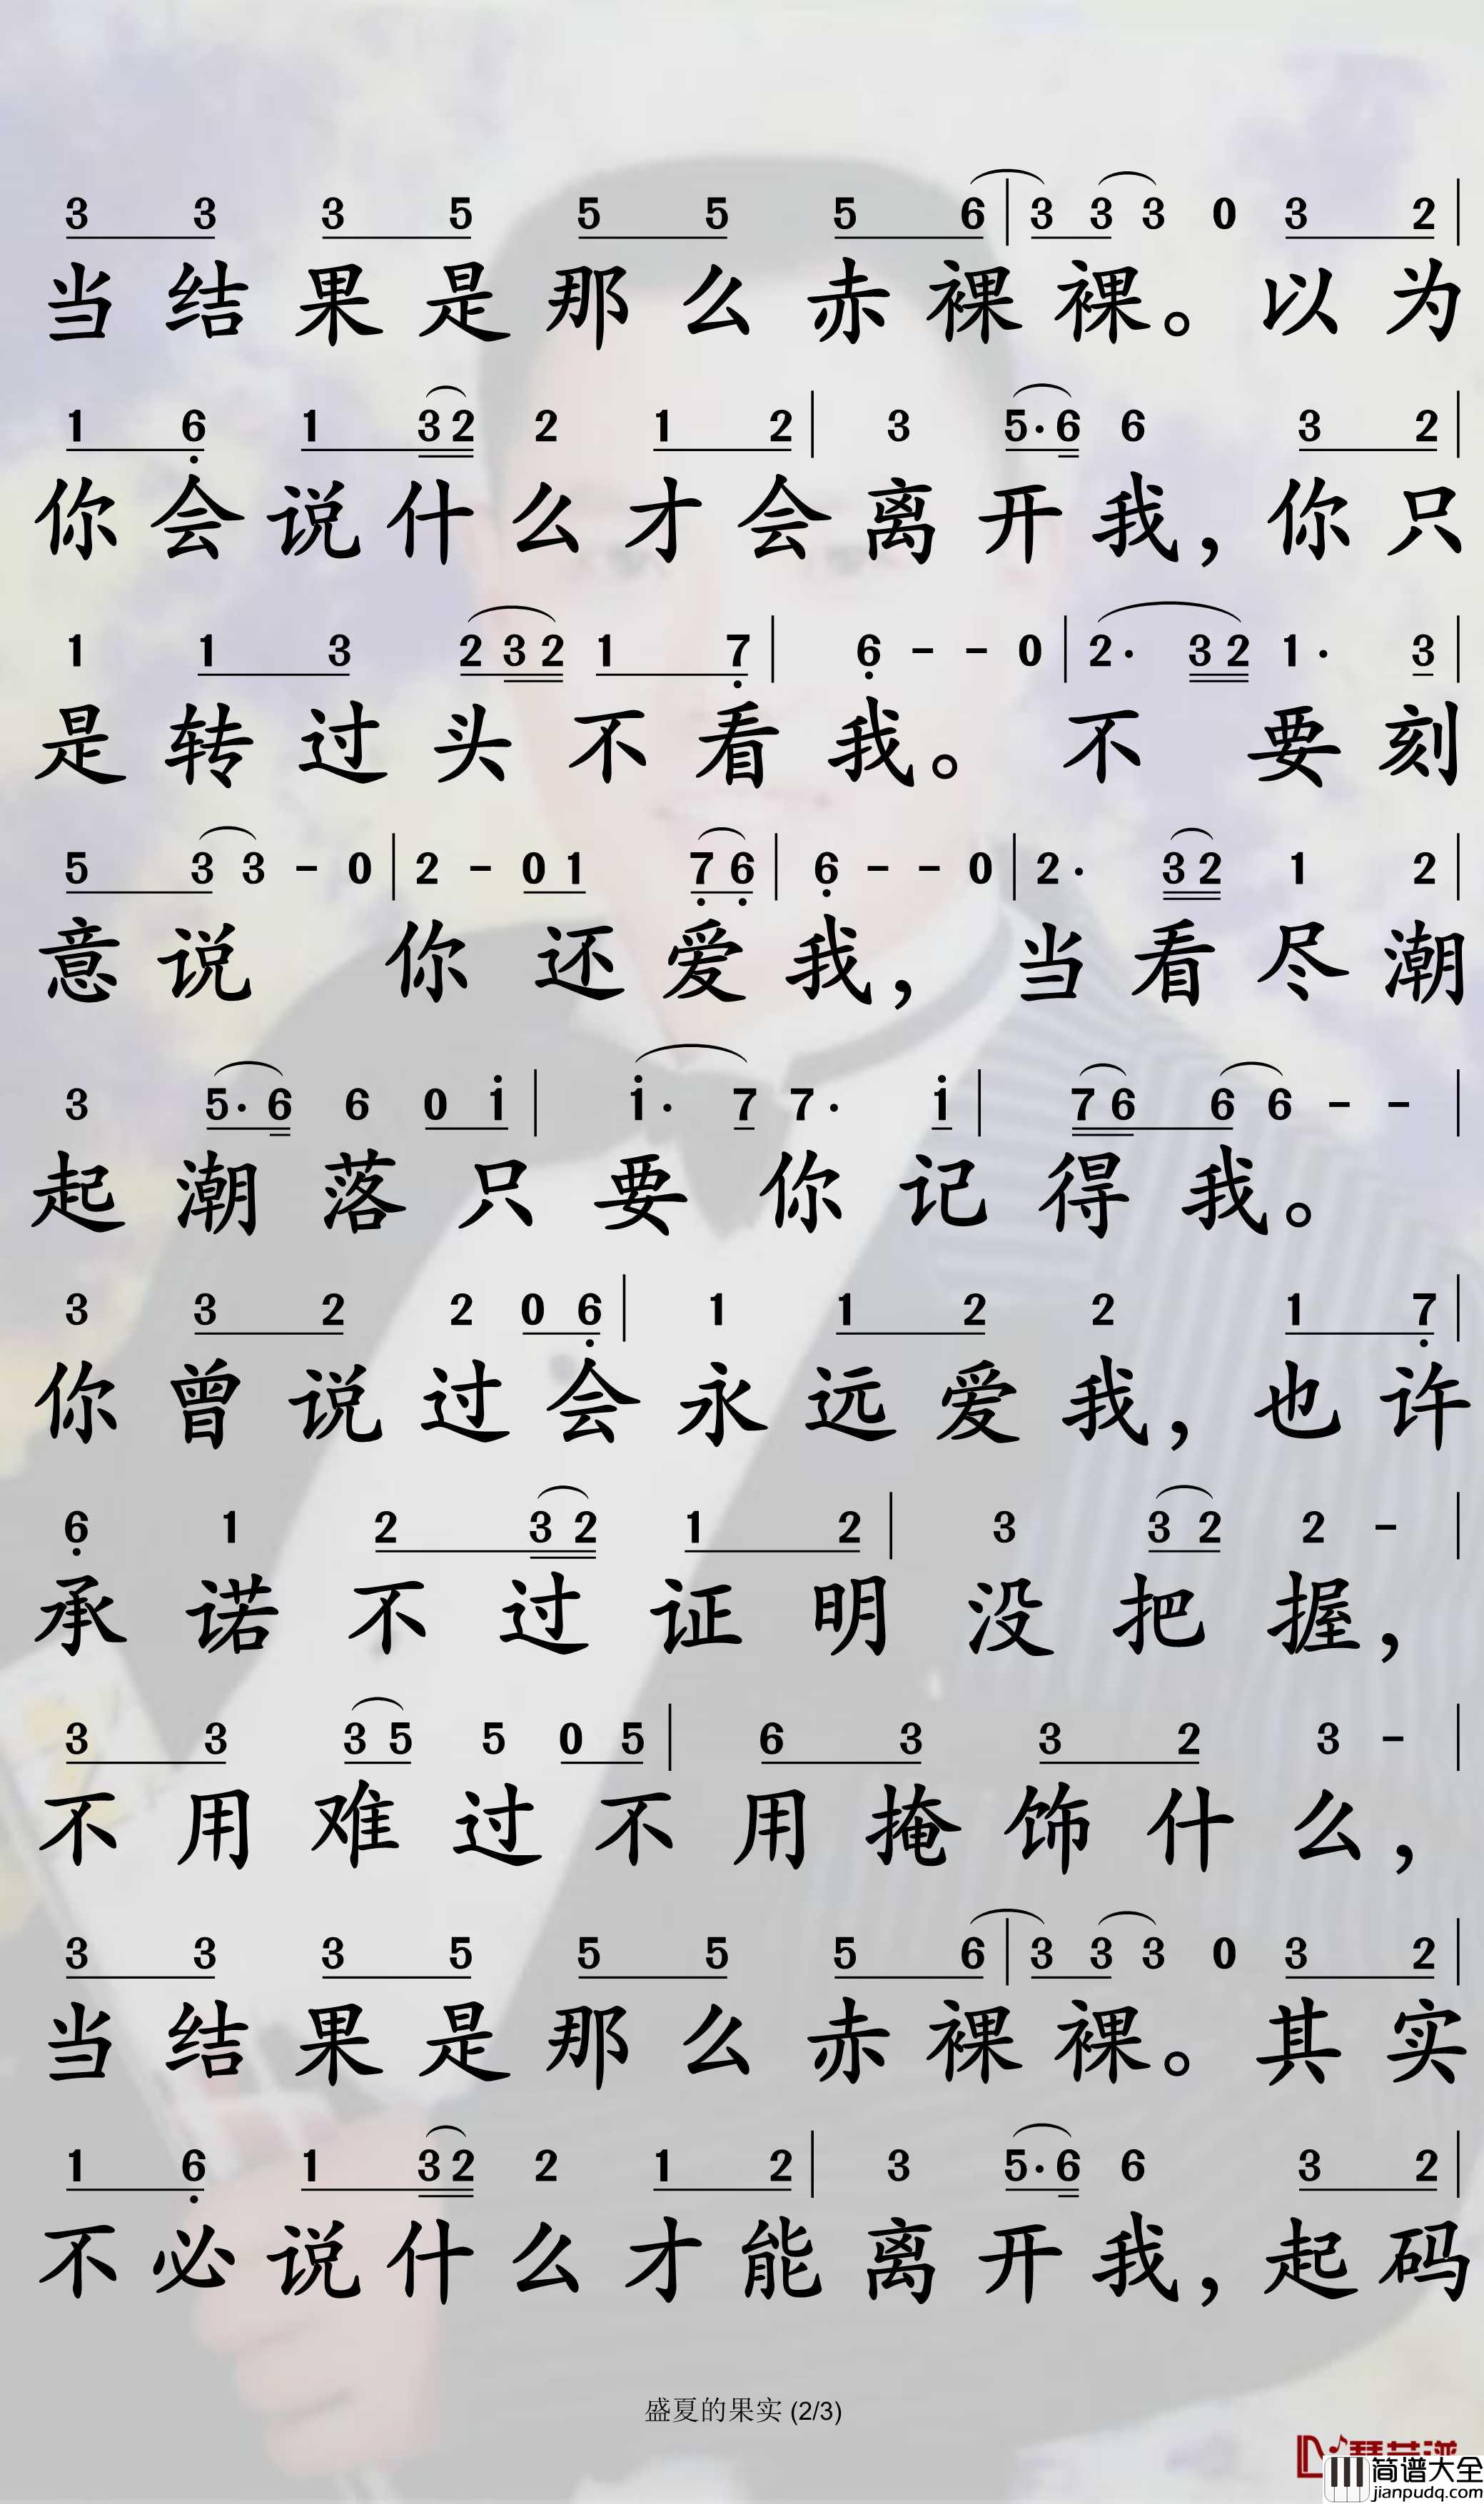 3 3 3 5 5 5 5 6 | 3 3 3 0 3 2 |
当结果是那么赤裸裸。以为
1 6 1 3 2 2 1 2 | 3 5· 6 6 3 2 |
你会说什么才会离开我，你只
1 1 3 2 3 2 1 7 | 6 - - 0 | 2· 3 2 1· 3 |
是转过头不看我。不要刻
5 3 3 - 0 | 2 - 0 1 7 6 | 6 - - 0 | 2· 3 2 1 2 |
意说 你还爱我，当看尽潮
3 5· 6 6 0 1 | 1· 7 7· 1 | 7 6 6 6 - - |
起潮落只要你记得我。
3 3 2 2 0 6 | 1 1 2 2 1 7 |
你曾说过会永远爱我，也许
6 1 2 3 2 1 2 | 3 3 2 2 - |
承诺不过证明没把握，
3 3 3 5 5 0 5 | 6 3 3 2 3 - |
不用难过不用掩饰什么，
3 3 3 5 5 5 5 6 | 3 3 3 0 3 2 |
当结果是那么赤裸裸。其实
1 6 1 3 2 2 1 2 | 3 5· 6 6 3 2 |
不必说什么才能离开我，起码
盛夏的果实 (2/3)
简谱大全
jianpudq.com